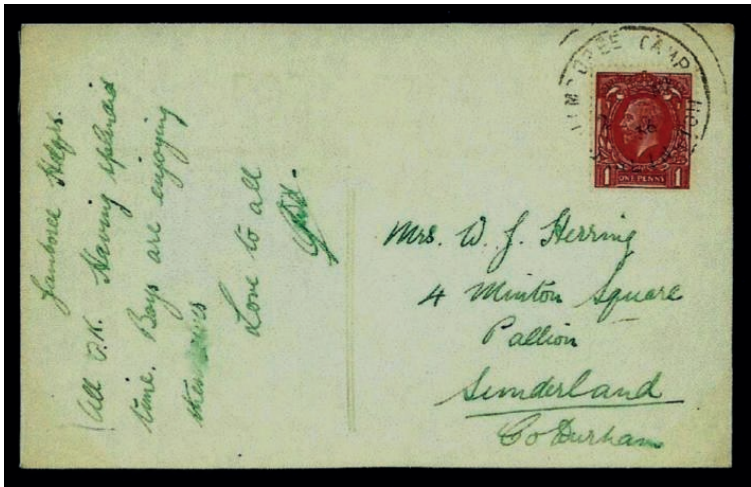 Jamboree Hdqrs.
All O.K. Having splendid
time. Boys are enjoying
themselves
Love to all
JAMBOREE CAMP
1 ONE PENNY 1
Mrs. W. J. Herring
4 Minton Square
Pallion
Sunderland
Co Durham